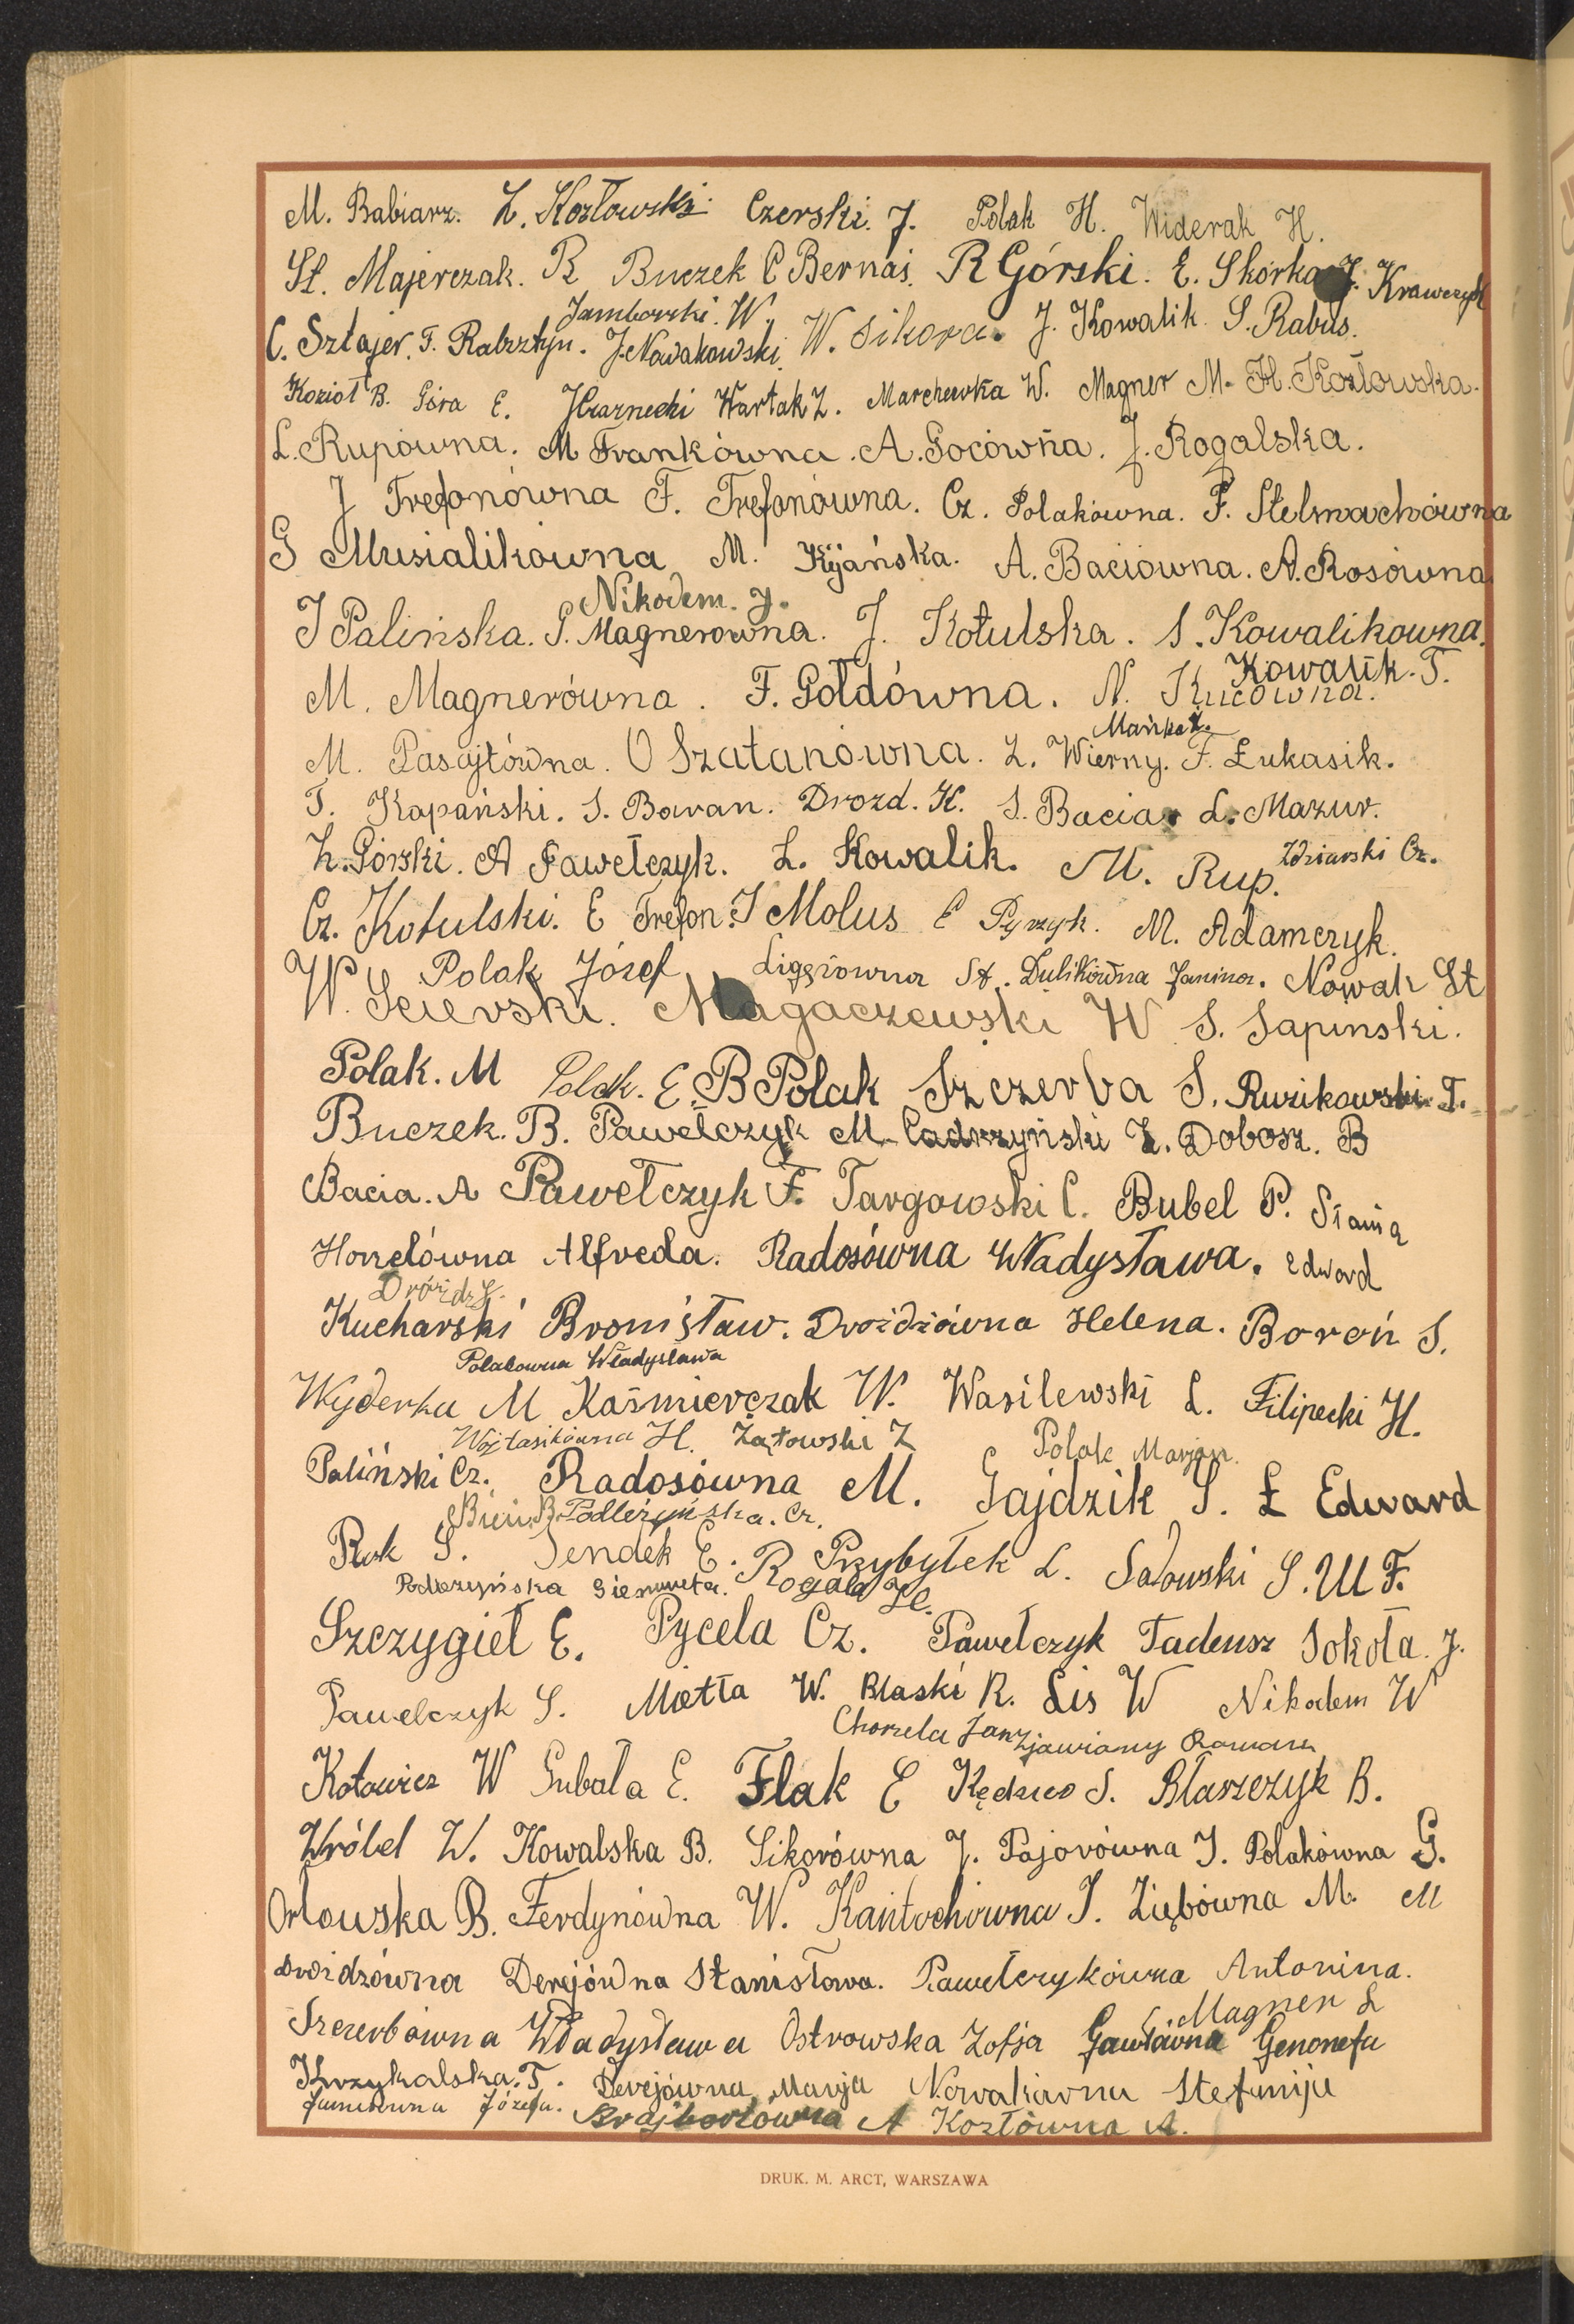 M. Babiarz. Z. Kozłowski Czerski. J. Polak H. Widerak H.
St. Majerczak. R Buczek C Bernaś. R Górski. E. Skórka J. Krawczyk
Jamborski. W.
C. Sztajer. F. Rabsztyn. J. Nowakowski. W. Sikora. J. Kowalik. S. Rabuś.
Kozioł B. Góra E. Wartak Z. Marchewka W. Magner M. H. Kozłowska.
L. Rupówna. M Frankówna. A. Gocówna. J. Rogalska.
J Trefonówna F. Trefonówna. Cz. Polakówna. F. Stelmachówna
G Musialikówna M. Kijańska. A. Baciówna. A. Rosówna
Nikodem. J.
J Palińska. S. Magnerówna. J. Kotulska. S. Kowalikowna.
Kowalik. T.
M. Magnerówna. F. Gołdówna. N. Kucówna.
Mańka Z.
M. Pasajtówna. O Szatanówna. L. Wierny. F. Łukasik.
T. Kapański. S. Baran. Drozd. K. S. Bacia. L. Mazur.
Z. Górski. A Pawełczyk. L. Kowalik. M. Rup. Zdziarski Cz.
Cz. Kotulski. E Trefon. J Molus E Pyrzyk. M. Adamczyk.
Polak Józef Ligęzowna St. Dulikówna Janina. Nowak St
W. Magaczewski W S. Sapinski.
Polak. M Polak. E. B Polak Szczerba S. Ruzikowski. T.
Buczek. B. Pawełczyk M. Cadrzyński Z. Dobosz. B
Bacia. A Pawełczyk F. Targowski C. Bubel P. Słania
Horzelówna Alfreda. Radosówna Władysława. Edward
Dróżdż S.
Kucharski Bronisław. Drożdżówna Helena. Boroń S.
Polakowna Władysława
Wyderka M Kaśmierczak W. Wasilewski L. Filipecki H.
Wójtasikówna H. Żątowski Z Polak Marjan.
Paliński Cz. Radosówna M. Gajdzik S. Ł Edward
Bień B. Podleżyńska. Cz.
Ruk S. Sendek E. Przybyłek L. Sadowski S. U F.
Podleżyńska Gienowefa. Rogala H.
Szczygieł E. Pycela Cz. Pawełczyk Tadeusz Sokoła. J.
Pawelczyk S. Miotła W. Blaski R. Lis W Nikodem W
Chorzela Jan Zjawiony Roman
Kotowicz W Gubała E. Flak E Kędzio S. Błaszczyk B.
Wróbel W. Kowalska B. Sikorówna J. Pajorówna J. Polakówna G.
Orłowska B. Ferdynówna W. Kantochówna J. Ziębówna M. M
Drożdżówna Derejówna Stanisława. Pawełczykówna Antonina.
Magner L
Szczerbówna Władysława Ostrowska Zofja Gawłówna Genonefa
Krzykalska. T. Derejówna Marja Nowakówna Stefanija
Józefa. Brajborłówna A Kozłówna A.
DRUK. M. ARCT, WARSZAWA